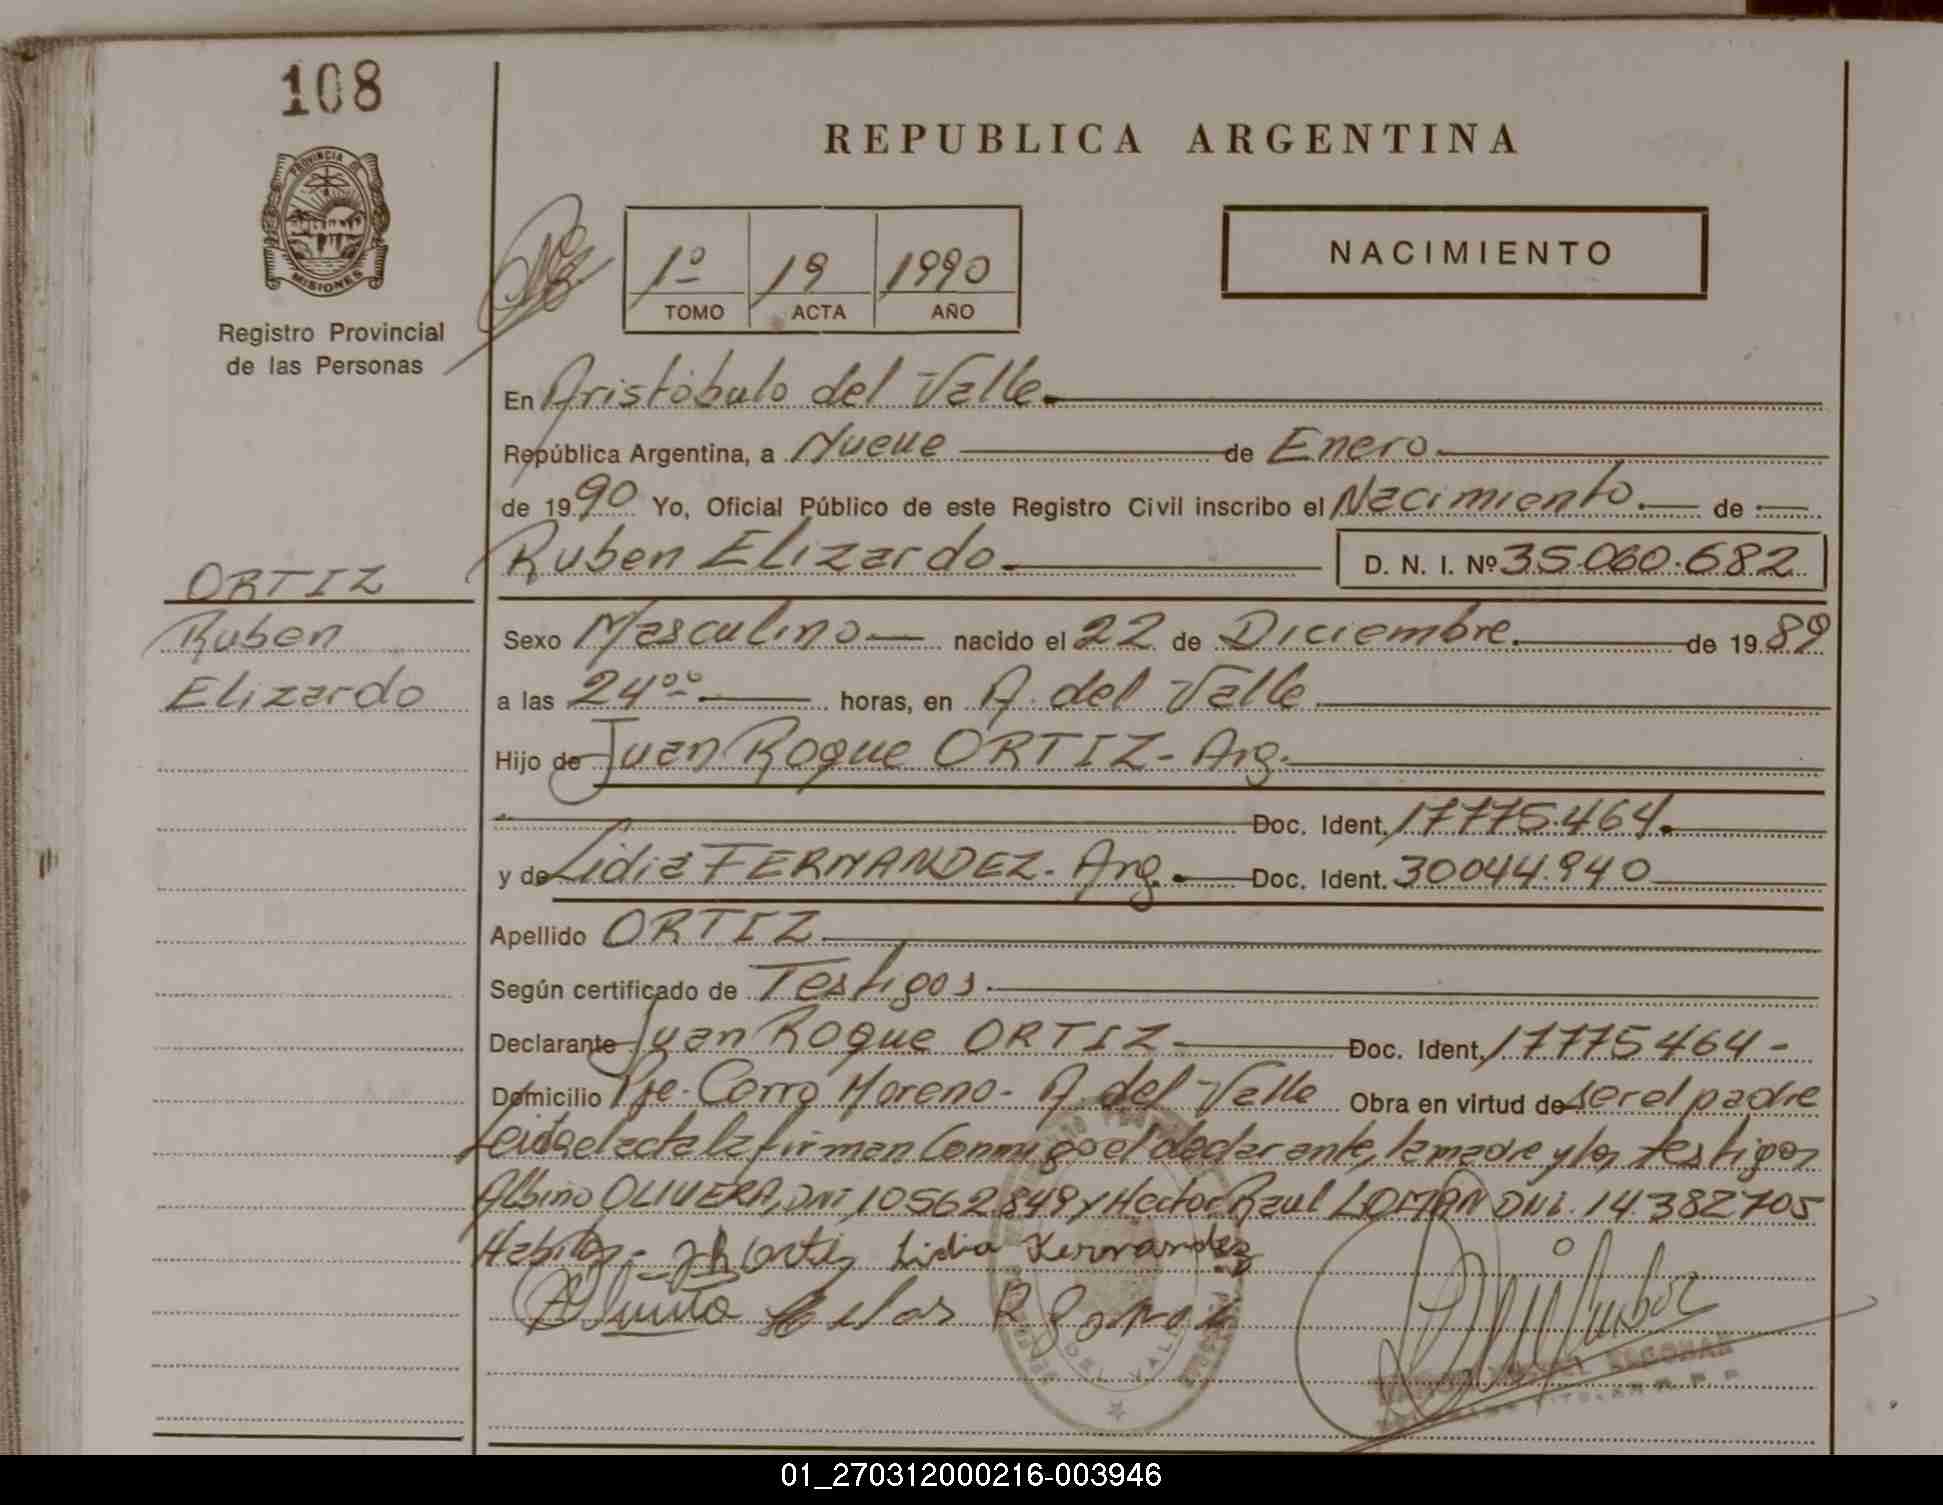 108
REPUBLICA ARGENTINA
PROVINCIA DE
MISIONES
Registro Provincial
de las Personas
1º 19 1990
TOMO ACTA AÑO
NACIMIENTO
En Aristóbulo del Valle
República Argentina, a Nueve de Enero
de 1990 Yo, Oficial Público de este Registro Civil inscribo el Nacimiento de
Ruben Elizardo D. N. I. Nº 35.060.682
ORTIZ
Ruben
Elizardo
Sexo Masculino nacido el 22 de Diciembre de 1989
a las 24ºº horas, en A. del Valle
Hijo de Juan Roque ORTIZ - Arg.
Doc. Ident. 17775.464.
y de Lidia FERNANDEZ - Arg. Doc. Ident. 30044.940
Apellido ORTIZ
Según certificado de Testigos
Declarante Juan Roque ORTIZ Doc. Ident. 17775464 -
Domicilio Pje. Cerro Moreno - A. del Valle Obra en virtud de ser el padre
Leida el acta la firman Conmigo el declarante, la madre y los testigos
Albino OLIVERA, DNI 10562849 y Hector Raul DNI. 14382705
Habiles - Ortiz Lidia Fernandez
DEL VALLE
01_270312000216-003946